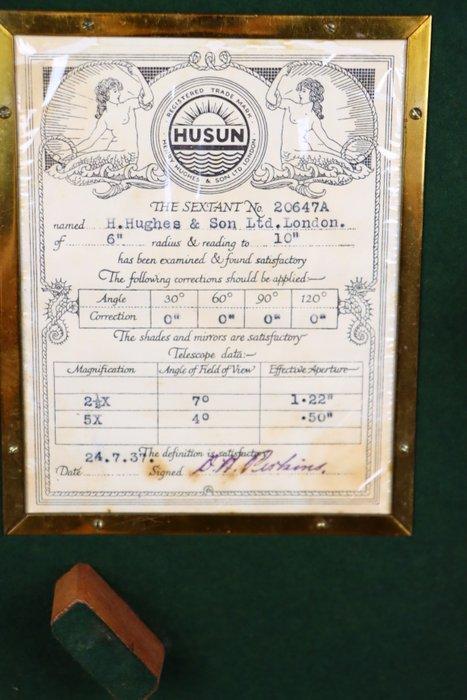 REGISTERED TRADE MARK
HUSUN
HENRY HUGHES & SON LTD. LONDON
THE SEXTANT No. 20647A
named H.Hughes & Son Ltd.London.
of 6" radius & reading to 10"
has been examined & found satisfactory
The following corrections should be applied:—
Angle 30° 60° 90° 120°
Correction 0" 0" 0" 0"
The shades and mirrors are satisfactory
Telescope data:—
Magnification Angle of Field of View Effective Aperture
2½X 7° 1·22"
5X 4° ·50"
The definition is satisfactory
Date 24.7.37. Signed D.A. Perkins.